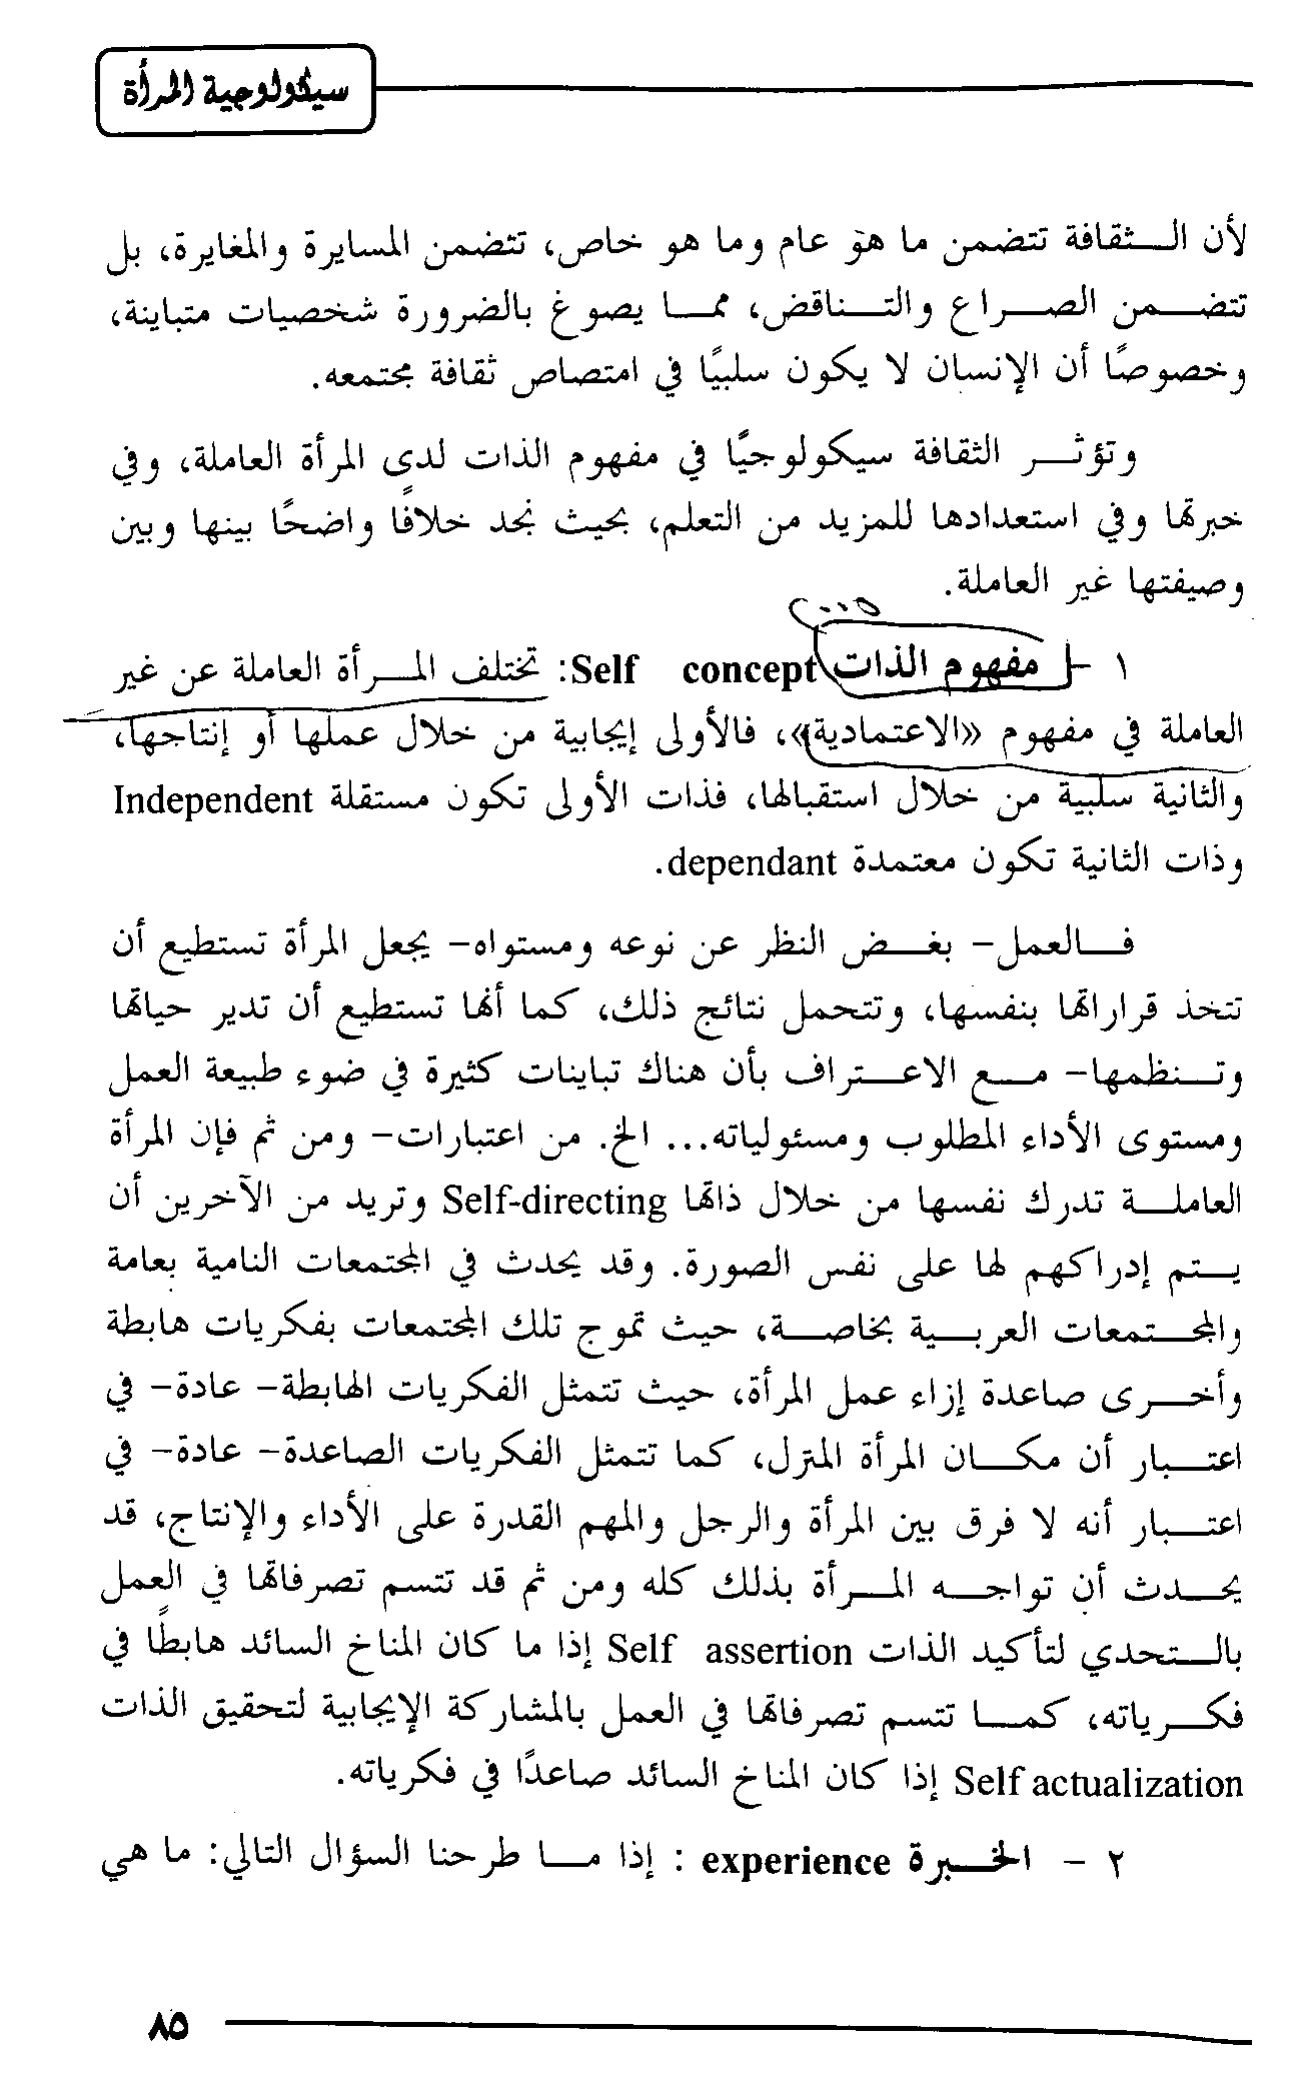 سيكولوجية المرأة
لأن الثقافة تتضمن ما هو عام وما هو خاص، تتضمن المسايرة والمغايرة، بل
تتضمن الصراع والتناقض، مما يصوغ بالضرورة شخصيات متباينة،
وخصوصًا أن الإنسان لا يكون سلبيًا في امتصاص ثقافة مجتمعه.
وتؤثر الثقافة سيكولوجيًا في مفهوم الذات لدى المرأة العاملة، وفي
خبرتها وفي استعدادها للمزيد من التعلم، بحيث نجد خلافًا واضحًا بينها وبين
وصيفتها غير العاملة.
١ - مفهوم الذات Self concept: تختلف المرأة العاملة عن غير
العاملة في مفهوم «الاعتمادية»، فالأولى إيجابية من خلال عملها أو إنتاجها،
والثانية سلبية من خلال استقبالها، فذات الأولى تكون مستقلة Independent
وذات الثانية تكون معتمدة dependant.
فالعمل- بغض النظر عن نوعه ومستواه- يجعل المرأة تستطيع أن
تتخذ قراراتها بنفسها، وتتحمل نتائج ذلك، كما أنها تستطيع أن تدير حياتها
وتنظمها- مع الاعتراف بأن هناك تباينات كثيرة في ضوء طبيعة العمل
ومستوى الأداء المطلوب ومسئولياته... الخ. من اعتبارات- ومن ثم فإن المرأة
العاملة تدرك نفسها من خلال ذاتها Self-directing وتريد من الآخرين أن
يتم إدراكهم لها على نفس الصورة. وقد يحدث في المجتمعات النامية بعامة
والمجتمعات العربية بخاصة، حيث تموج تلك المجتمعات بفكريات هابطة
وأخرى صاعدة إزاء عمل المرأة، حيث تتمثل الفكريات الهابطة- عادة- في
اعتبار أن مكان المرأة المنزل، كما تتمثل الفكريات الصاعدة- عادة- في
اعتبار أنه لا فرق بين المرأة والرجل والمهم القدرة على الأداء والإنتاج، قد
يحدث أن تواجه المرأة بذلك كله ومن ثم قد تتسم تصرفاتها في العمل
بالتحدي لتأكيد الذات Self assertion إذا ما كان المناخ السائد هابطًا في
فكرياته، كما تتسم تصرفاتها في العمل بالمشاركة الإيجابية لتحقيق الذات
Self actualization إذا كان المناخ السائد صاعدًا في فكرياته.
٢ - الخبرة experience : إذا ما طرحنا السؤال التالي: ما هي
٨٥